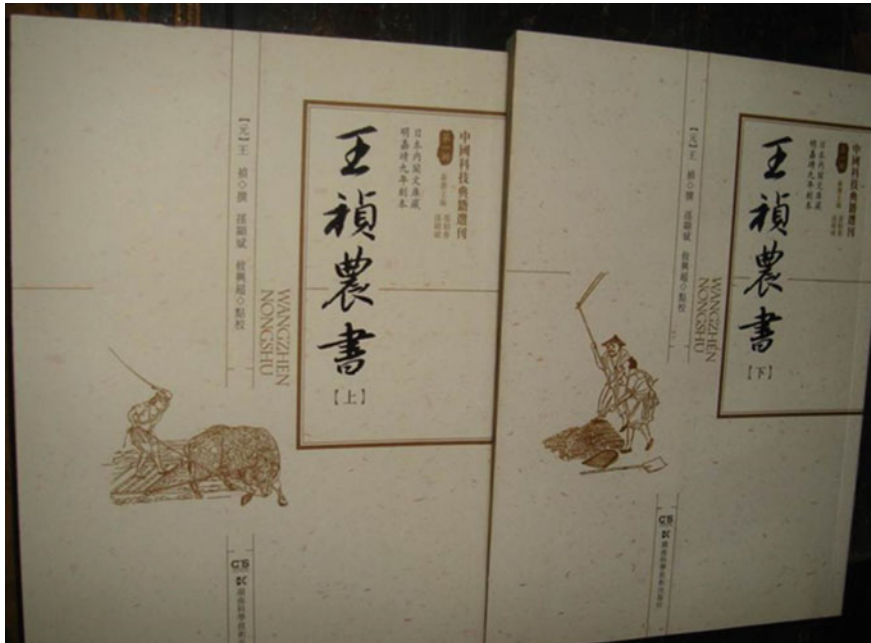 中國科技典籍選刊
第一輯
叢書主編
日本內閣文庫藏
明嘉靖九年刻本
王禎農書
【上】
WANGZHEN
NONGSHU
【元】王 禎◇撰 孫顯斌 攸興超◇點校
CS
湖南科學技術出
中國科技典籍選刊
第一輯
叢書主編
日本內閣文庫藏
明嘉靖九年刻本
王禎農書
【下】
WANGZHEN
NONGSHU
【元】王 禎◇撰 孫顯斌 攸興超◇點校
CS
湖南科學技術出版社